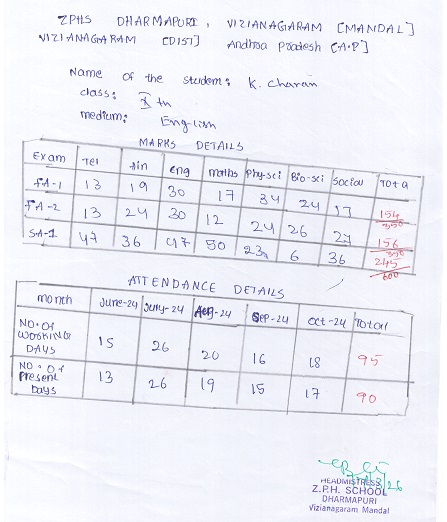 ZPHS DHARMAPURI, VIZIANAGARAM [MANDAL]
VIZIANAGARAM [DIST] Andhra Pradesh [A.P]
Name of the student: K. Charan
class: X th
medium: English
MARKS DETAILS
Exam Tel hin eng maths Phy-sci Bio-sci social Tota
FA-1 13 19 30 17 34 24 17 154/350
FA-2 13 24 30 12 24 26 27 156/350
SA-1 47 36 47 50 23 6 36 245/600
ATTENDANCE DETAILS
month June-24 July-24 Aug-24 Sep-24 Oct-24 Total
NO.OF WORKING DAYS 15 26 20 16 18 95
NO.OF Present Days 13 26 19 15 17 90
HEADMISTRESS
Z.P.H. SCHOOL
DHARMAPURI
Vizianagaram Mandal